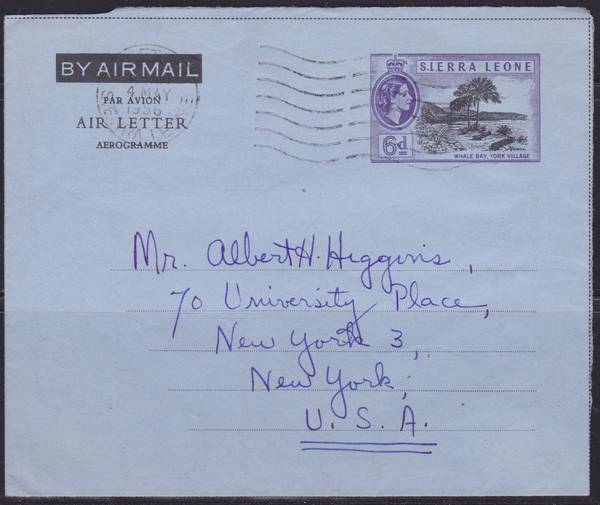 BY AIR MAIL
PAR AVION
AIR LETTER
AEROGRAMME
4 MAY
1956
SIERRA LEONE
6d
WHALE BAY, YORK VILLAGE
Mr. Albert H. Higgins,
70 University Place,
New York 3,
New York,
U. S. A.